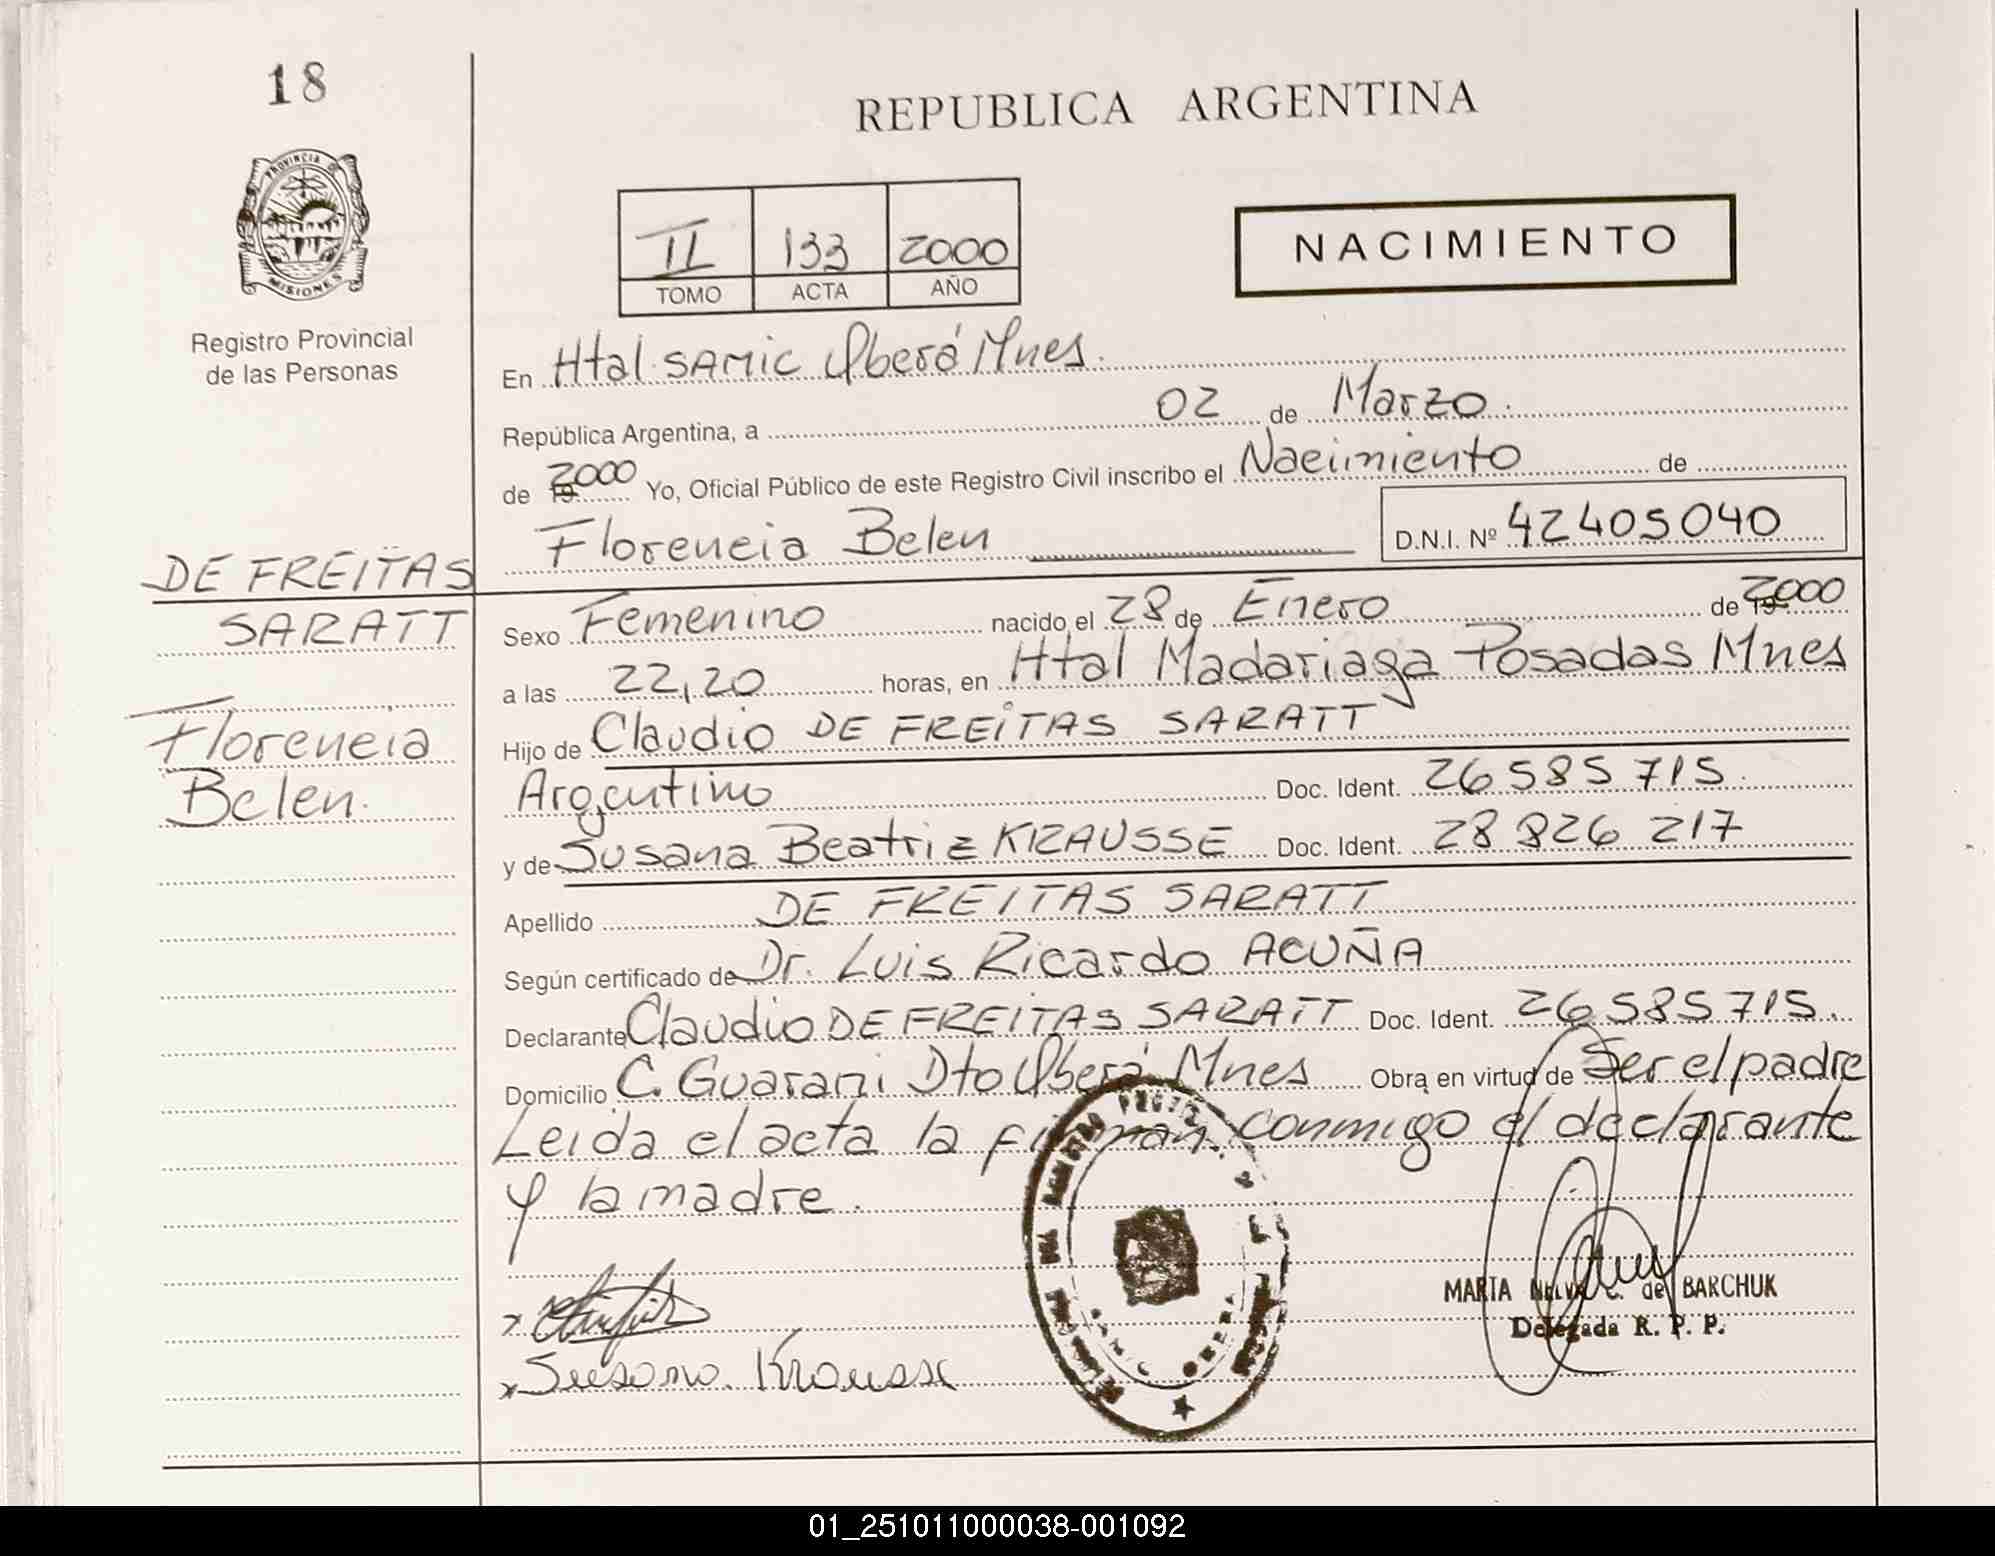 18
REPUBLICA ARGENTINA
PROVINCIA DE
MISIONES
Registro Provincial
de las Personas
II 133 2000
TOMO ACTA AÑO
NACIMIENTO
En Htal SAMIC Oberá Mnes.
República Argentina, a 02 de Marzo.
de 19 2000 Yo, Oficial Público de este Registro Civil inscribo el Nacimiento de
Florencia Belen D.N.I. Nº 42405040
DE FREITAS
SARATT
Florencia
Belen.
Sexo Femenino nacido el 28 de Enero de 19 2000
a las 22,20 horas, en Htal Madariaga Posadas Mnes
Hijo de Claudio DE FREITAS SARATT
Argentino Doc. Ident. 26 585 715.
y de Susana Beatriz KRAUSSE Doc. Ident. 28 826 217
Apellido DE FREITAS SARATT
Según certificado de Dr. Luis Ricardo ACUÑA
Declarante Claudio DE FREITAS SARATT Doc. Ident. 26 585 715.
Domicilio C. Guarani Dto Oberá Mnes Obra en virtud de Ser el padre
Leida el acta la firman conmigo el declarante
y la madre.
Susana Krausse
MARIA NELVA C. de BARCHUK
Delegada R. P. P.
01_251011000038-001092